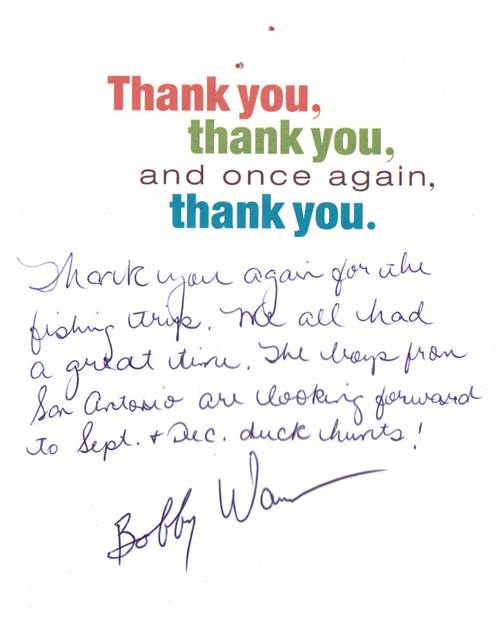 Thank you,
thank you,
and once again,
thank you.
Thank you again for the
fishing trip. We all had
a great time. The boys from
San Antonio are looking forward
to Sept. + Dec. duck hunts!
Bobby